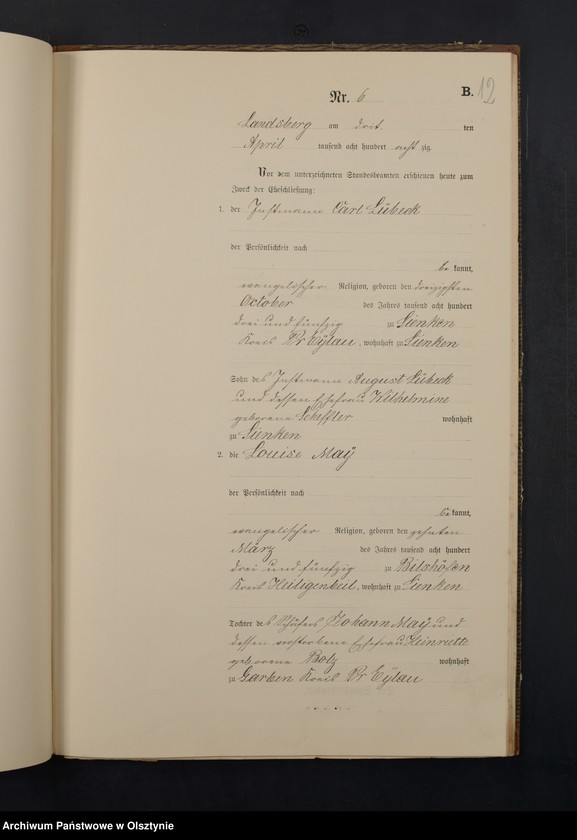 Nr. 6
B. 12
Landsberg am drit ten
April tausend acht hundert acht zig.
Vor dem unterzeichneten Standesbeamten erschienen heute zum
Zweck der Eheschließung:
1. der Instmann Carl Lübeck
der Persönlichkeit nach
be kannt,
evangelischer Religion, geboren den dreizigsten
October des Jahres tausend acht hundert
drei und fünfzig zu Sienken
Kreis Pr Eylau, wohnhaft zu Sienken
Sohn des Instmann August Lübeck
und dessen Ehefrau Wilhelmine
geborene Scheffler wohnhaft
zu Sienken
2. die Louise Maÿ
der Persönlichkeit nach
be kannt,
evangelischer Religion, geboren den zehnten
März des Jahres tausend acht hundert
drei und fünfzig zu Bilshöfen
Kreis Heiligenbeil, wohnhaft zu Sienken
Tochter des Schäfers Johann Maÿ und
dessen verstorbene Ehefrau Heinrutte
geborene Bolz wohnhaft
zu Garben Kreis Pr Eylau
Archiwum Państwowe w Olsztynie